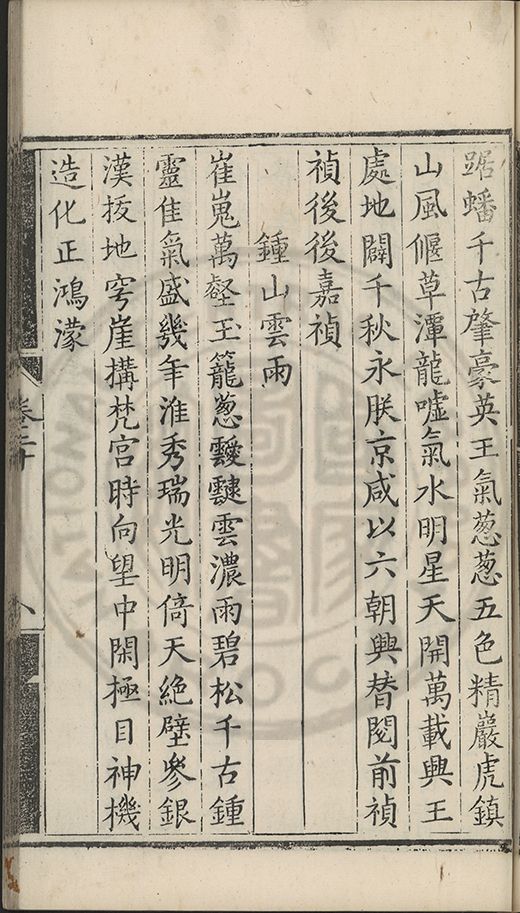 踞蟠千古肇豪英王氣葱葱五色精巖虎鎮
山風偃草潭龍噓氣水明星天開萬載興王
處地闢千秋永朕京咸以六朝興替閱前禎
禎後後嘉禎
鍾山雲雨
崔嵬萬壑玉籠葱靉靆雲濃雨碧松千古鍾
靈佳氣盛幾年淮秀瑞光明倚天絶壁參銀
漢拔地穹崖搆梵宮時向望中閑極目神機
造化正鴻濛
卷二十
八